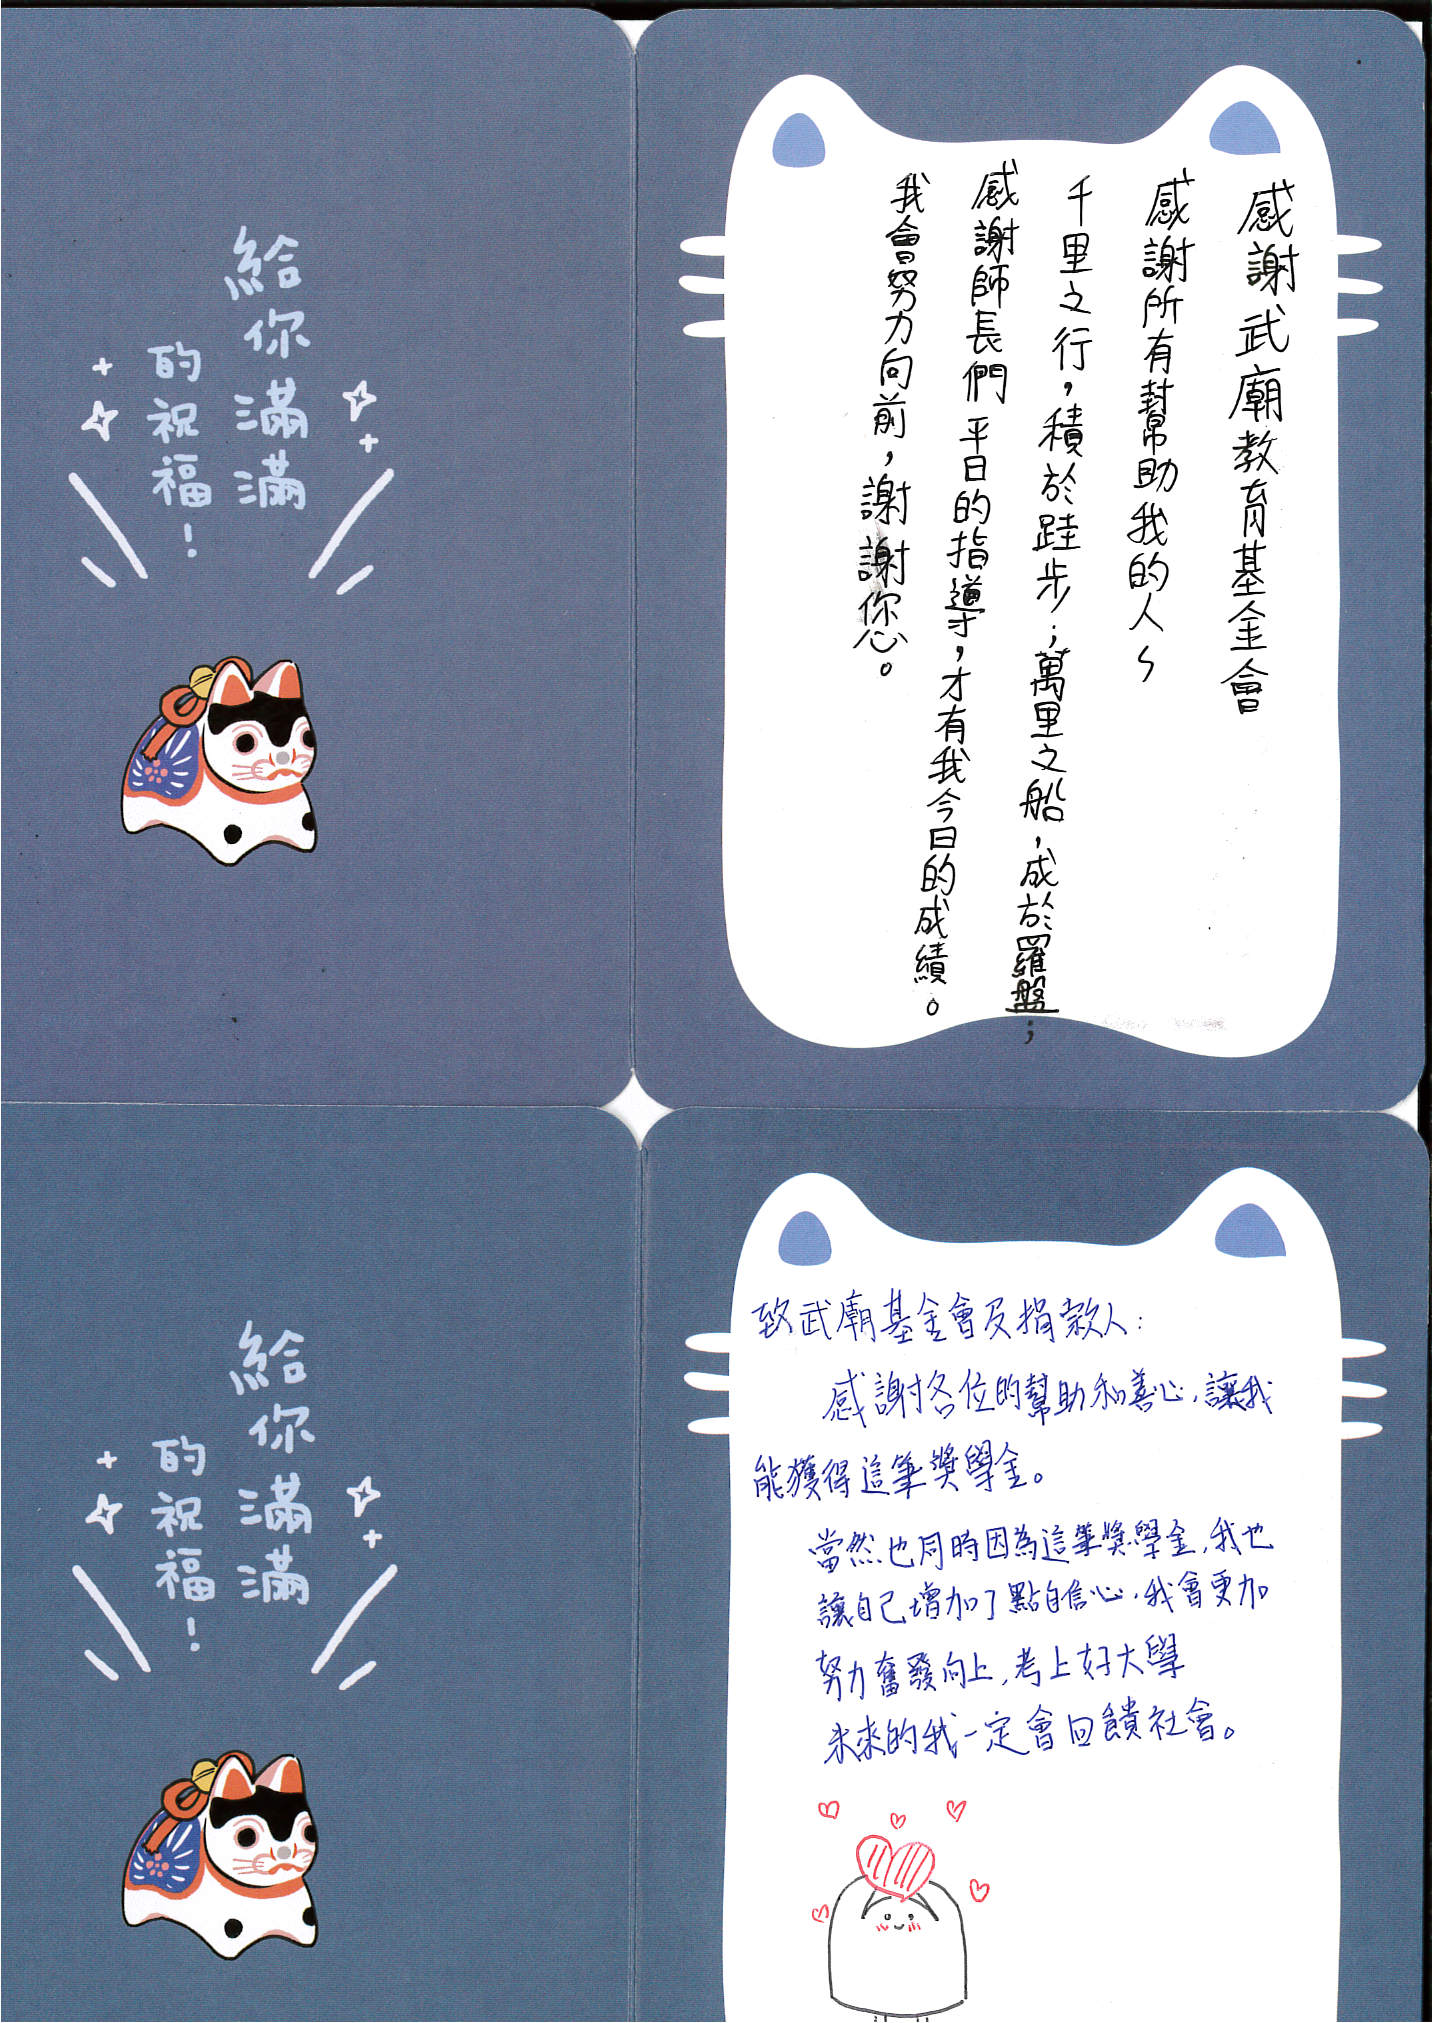 給你滿滿
的祝福！
感謝武廟教育基金會
感謝所有幫助我的人~
千里之行，積於跬步；萬里之船，成於羅盤；
感謝師長們平日的指導，才有我今日的成績。
我會努力向前，謝謝您。
給你滿滿
的祝福！
致武廟基金會及捐款人：
感謝各位的幫助和善心，讓我
能獲得這筆獎學金。
當然也同時因為這筆獎學金，我也
讓自己增加了點自信心，我會更加
努力奮發向上，考上好大學
未來的我一定會回饋社會。